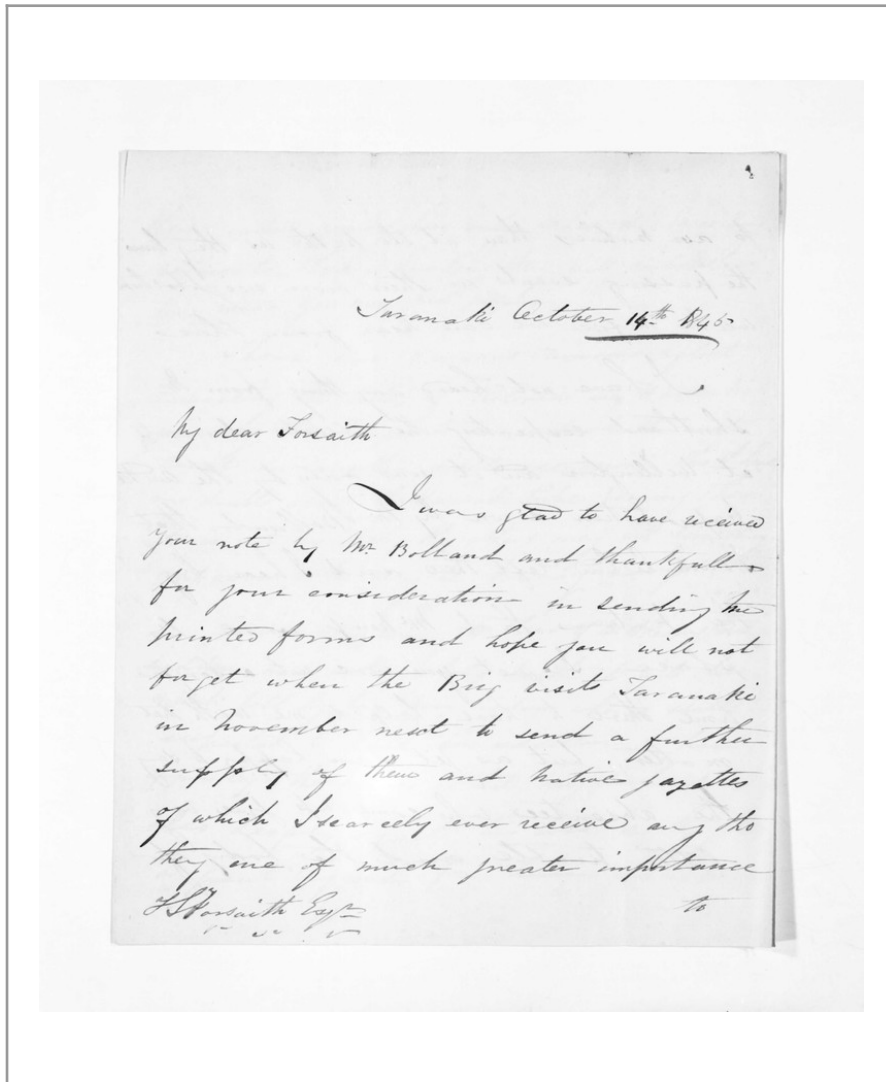 Taranaki October 14th 1845
My dear Forsaith
I was glad to have received
your note by Mr Bolland and thankfull
for your consideration in sending me
printed forms and hope you will not
forget when the Brig visits Taranaki
in November next to send a further
supply of them and native gazettes
of which I scarcely ever receive any tho
they are of much greater importance
T S Forsaith Esqre
to